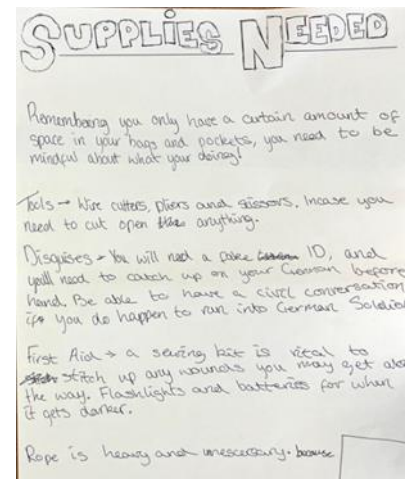 SUPPLIES NEEDED
Remembering you only have a curtain amount of
space in your bags and pockets, you need to be
mindful about what your doing!
Tools → Wire cutters, pliers and scissors. Incase you
need to cut open anything.
Disguises → You will need a fake ID, and
you'll need to catch up on your German before
hand. Be able to have a civil conversation
if you do happen to run into German Soldie
First Aid → a sewing kit is vital to
stitch up any wounds you may get alo
the way. Flashlights and batteries for when
it gets darker.
Rope is heavy and unescersary. because